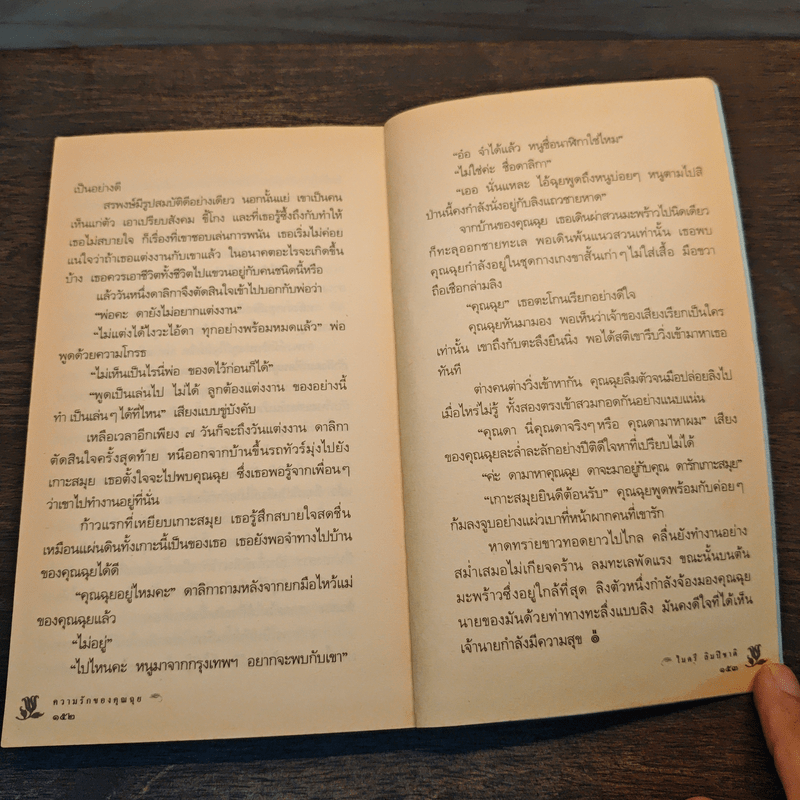 เป็นอย่างดี
สรพงษ์มีรูปสมบัติดีอย่างเดียว นอกนั้นแย่ เขาเป็นคน
เห็นแก่ตัว เอาเปรียบสังคม ขี้โกง และที่เธอรู้ซึ้งถึงกับทำให้
เธอไม่สบายใจ ก็เรื่องที่เขาชอบเล่นการพนัน เธอเริ่มไม่ค่อย
แน่ใจว่าถ้าเธอแต่งงานกับเขาแล้ว ในอนาคตอะไรจะเกิดขึ้น
บ้าง เธอควรเอาชีวิตทั้งชีวิตไปแขวนอยู่กับคนชนิดนี้หรือ
แล้ววันหนึ่งดาลิกาจึงตัดสินใจเข้าไปบอกกับพ่อว่า
“พ่อคะ ดายังไม่อยากแต่งงาน”
“ไม่แต่งได้ไงวะไอ้ดา ทุกอย่างพร้อมหมดแล้ว” พ่อ
พูดด้วยความโกรธ
“ไม่เห็นเป็นไรนี่พ่อ ของดไว้ก่อนก็ได้”
“พูดเป็นเล่นไป ไม่ได้ ลูกต้องแต่งงาน ของอย่างนี้
ทำเป็นเล่นๆ ได้ที่ไหน” เสียงแบบขู่บังคับ
เหลือเวลาอีกเพียง ๗ วันก็จะถึงวันแต่งงาน ดาลิกา
ตัดสินใจครั้งสุดท้าย หนีออกจากบ้านขึ้นรถทัวร์มุ่งไปยัง
เกาะสมุย เธอตั้งใจจะไปพบคุณฉุย ซึ่งเธอพอรู้จากเพื่อนๆ
ว่าเขาไปทำงานอยู่ที่นั่น
ก้าวแรกที่เหยียบเกาะสมุย เธอรู้สึกสบายใจสดชื่น
เหมือนแผ่นดินทั้งเกาะนี้เป็นของเธอ เธอยังพอจำทางไปบ้าน
ของคุณฉุยได้ดี
“คุณฉุยอยู่ไหมคะ” ดาลิกาถามหลังจากยกมือไหว้แม่
ของคุณฉุยแล้ว
“ไม่อยู่”
“ไปไหนคะ หนูมาจากกรุงเทพฯ อยากจะพบกับเขา”
ความรักของคุณฉุย
๑๕๒
“อ๋อ จำได้แล้ว หนูชื่อนาฬิกาใช่ไหม”
“ไม่ใช่ค่ะ ชื่อดาลิกา”
“เออ นั่นแหละ ไอ้ฉุยพูดถึงหนูบ่อยๆ หนูตามไปสิ
ป่านนี้คงกำลังนั่งอยู่กับลิงแถวชายหาด”
จากบ้านของคุณฉุย เธอเดินผ่าสวนมะพร้าวไปนิดเดียว
ก็ทะลุออกชายทะเล พอเดินพ้นแนวสวนเท่านั้น เธอพบ
คุณฉุยกำลังอยู่ในชุดกางเกงขาสั้นเก่าๆ ไม่ใส่เสื้อ มือขวา
ถือเชือกล่ามลิง
“คุณฉุย” เธอตะโกนเรียกอย่างดีใจ
คุณฉุยหันมามอง พอเห็นว่าเจ้าของเสียงเรียกเป็นใคร
เท่านั้น เขาถึงกับตะลึงยืนนิ่ง พอได้สติเขารีบวิ่งเข้ามาหาเธอ
ทันที
ต่างคนต่างวิ่งเข้าหากัน คุณฉุยลืมตัวจนมือปล่อยลิงไป
เมื่อไหร่ไม่รู้ ทั้งสองตรงเข้าสวมกอดกันอย่างแนบแน่น
“คุณดา นี่คุณดาจริงๆ หรือ คุณดามาหาผม” เสียง
ของคุณฉุยละล่ำละลักอย่างปีติดีใจหาที่เปรียบไม่ได้
“ค่ะ ดามาหาคุณฉุย ดาจะมาอยู่กับคุณ ดารักเกาะสมุย”
“เกาะสมุยยินดีต้อนรับ” คุณฉุยพูดพร้อมกับค่อยๆ
ก้มลงจูบอย่างแผ่วเบาที่หน้าผากคนที่เขารัก
หาดทรายขาวทอดยาวไปไกล คลื่นยังทำงานอย่าง
สม่ำเสมอไม่เกียจคร้าน ลมทะเลพัดแรง ขณะนั้นบนต้น
มะพร้าวซึ่งอยู่ใกล้ที่สุด ลิงตัวหนึ่งกำลังจ้องมองคุณฉุย
นายของมันด้วยท่าทางทะลึ่งแบบลิง มันคงดีใจที่ได้เห็น
เจ้านายกำลังมีความสุข ๏
ไมตรี ลิมปิชาติ
๑๕๓